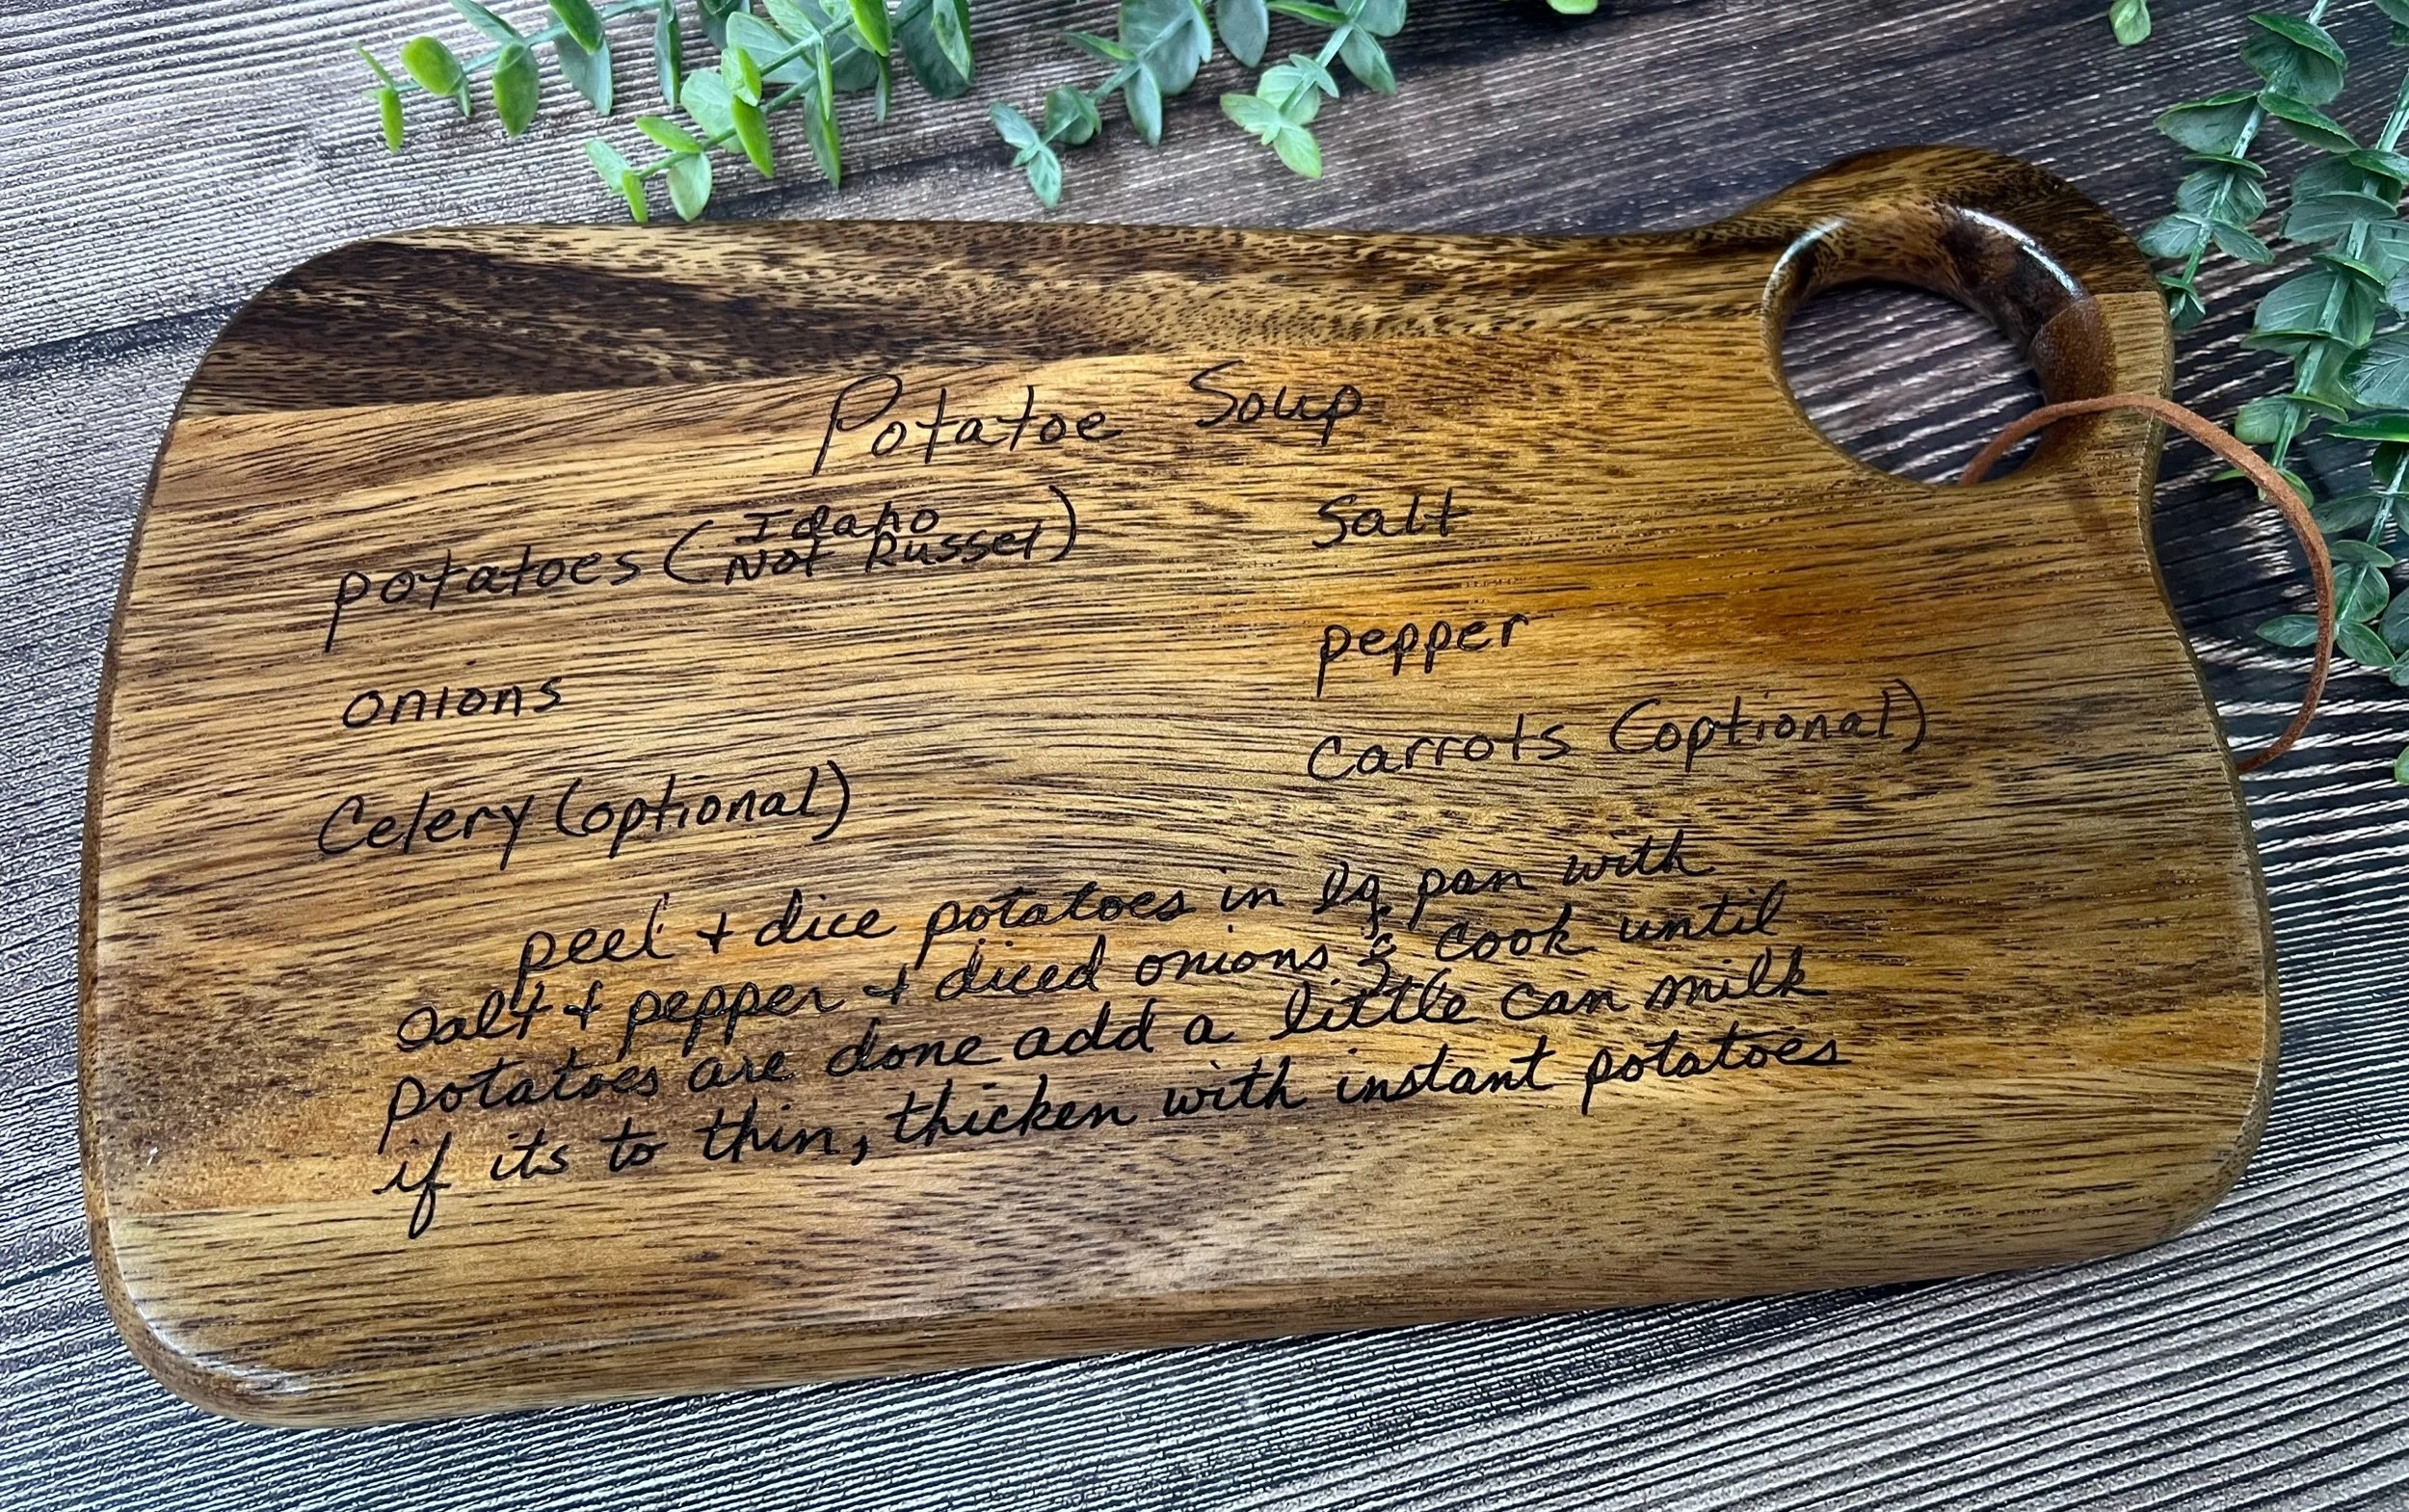 Potatoe Soup
potatoes (Idaho Not Russet)
Salt
onions
pepper
Celery (optional)
Carrots (optional)
peel + dice potatoes in lg pan with
salt + pepper + diced onions & cook until
potatoes are done add a little can milk
if its to thin, thicken with instant potatoes